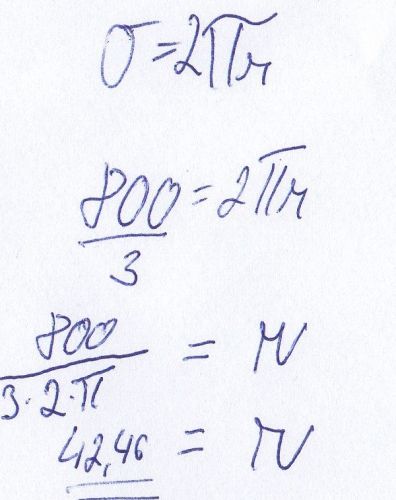 σ = 2πr
800/3 = 2πr
800/3·2·π = r
42,46 = r